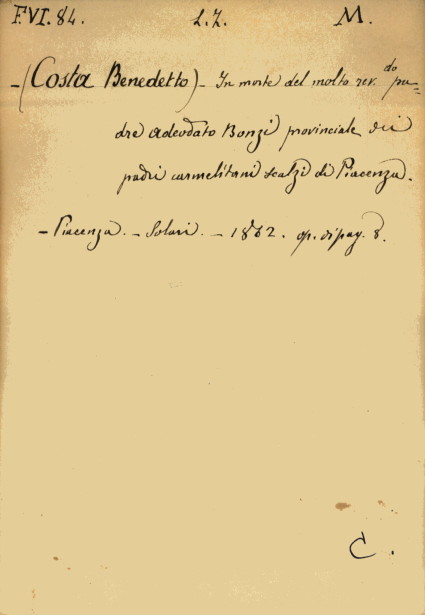 F.VI. 84. L.Z. M.
– (Costa Benedetto) – In morte del molto rev.do pa=
dre Adeodato Bonzi provinciale dei
padri carmelitani scalzi di Piacenza.
– Piacenza. – Solari. – 1862. op. di pag. 8.
C.